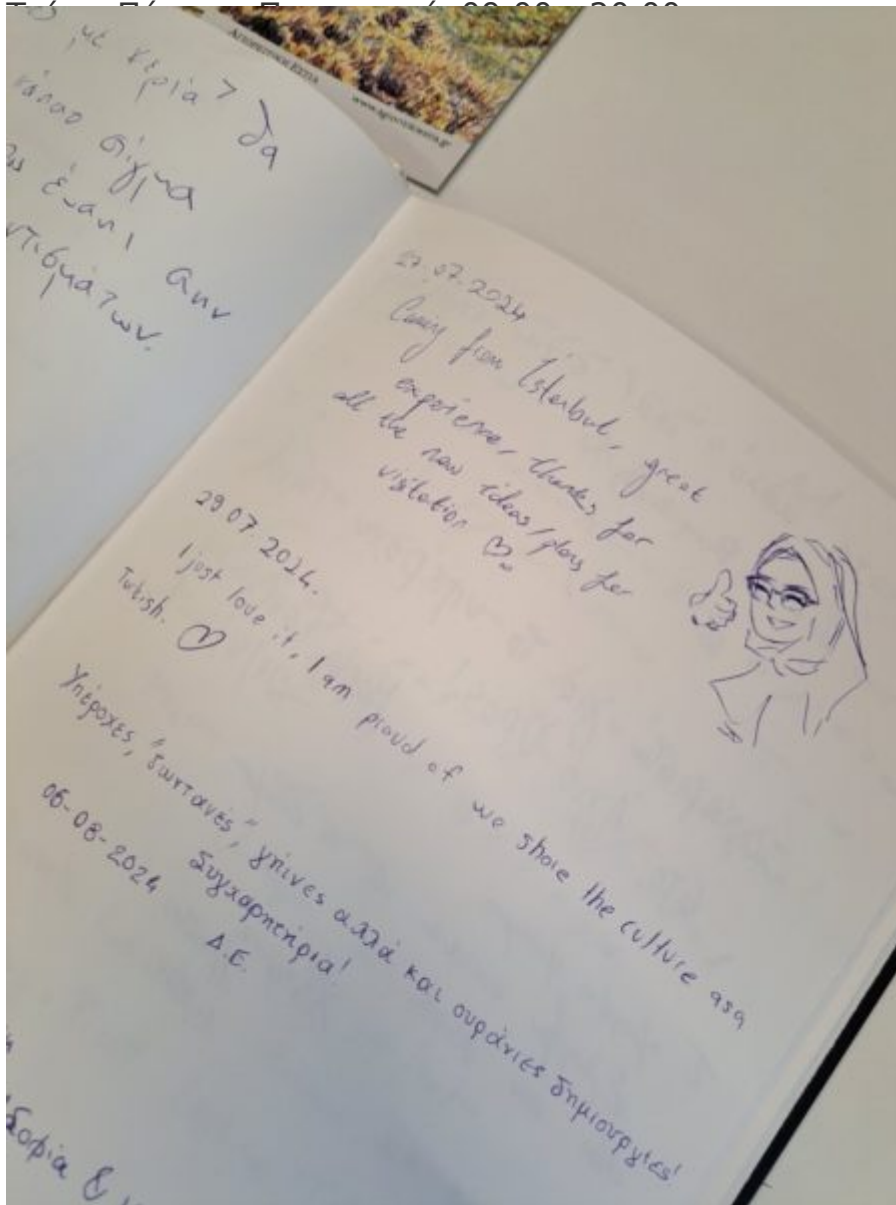 με κεριά> θα
κάποιο στίγμα
έναντι στην
27.07.2024
Coming from İstanbul, great
experience, thanks for
all the new ideas/plans for
visitation ♡
29 07 2024.
I just love it, I am proud of we share the culture as a
Tukish. ♡
Υπέροχες, "ζωντανές", γήινες αλλά και ουράνιες δημιουργίες!
Συγχαρητήρια!
06-08-2024
Δ.Ε.
Σοφία &